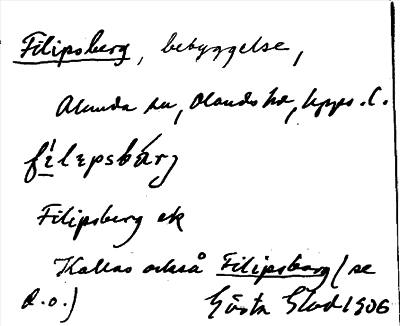 Filipsberg, bebyggelse,
Ålunda sn, Olands hd, Upps. l.
fílepsbárj
Filipsberg ek
Kallas också Filipsborg (se
d.o.) Gösta Flod 1906